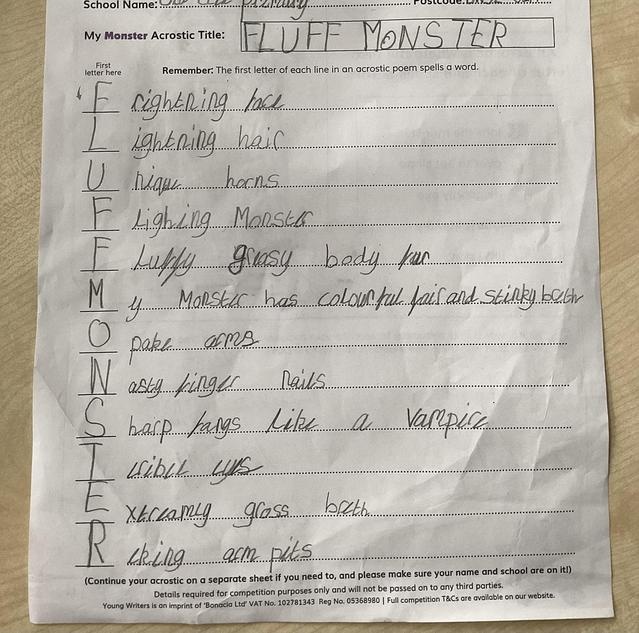 School Name:
My Monster Acrostic Title: FLUFF MONSTER
First letter here
Remember: The first letter of each line in an acrostic poem spells a word.
Frightning face
Lightning hair
Unique horns
Flighing Monster
Fluffy greasy body fur
My Monster has colourful fair and stinky breth
Opake arms
Nasty finger nails
Sharp fangs like a vampire
Terible eyes
Extreamly gross breth
Reking arm pits
(Continue your acrostic on a separate sheet if you need to, and please make sure your name and school are on it!)
Details required for competition purposes only and will not be passed on to any third parties.
Young Writers is an imprint of 'Bonacia Ltd' VAT No. 102781343 Reg No. 05368980 | Full competition T&Cs are available on our website.